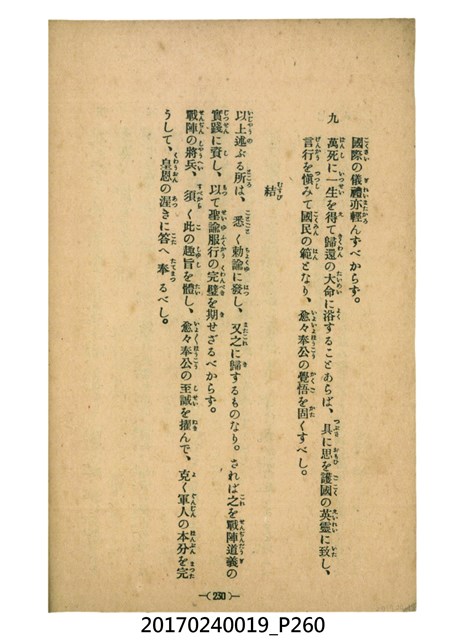 國際の儀禮亦輕んすべからず。
九 萬死に一生を得て歸還の大命に浴することあらば、具に思を護國の英靈に致し、
言行を愼みて國民の範となり、愈々奉公の覺悟を固くすべし。
結
以上述ぶる所は、悉く勅諭に發し、又之に歸するものなり。されば之を戰陣道義の
實踐に資し、以て聖諭服行の完璧を期せざるべからず。
戰陣の將兵、須く此の趣旨を體し、愈々奉公の至誠を擢んで、克く軍人の本分を完
うして、皇恩の渥きに答へ奉るべし。
—(230)—
20170240019_P260